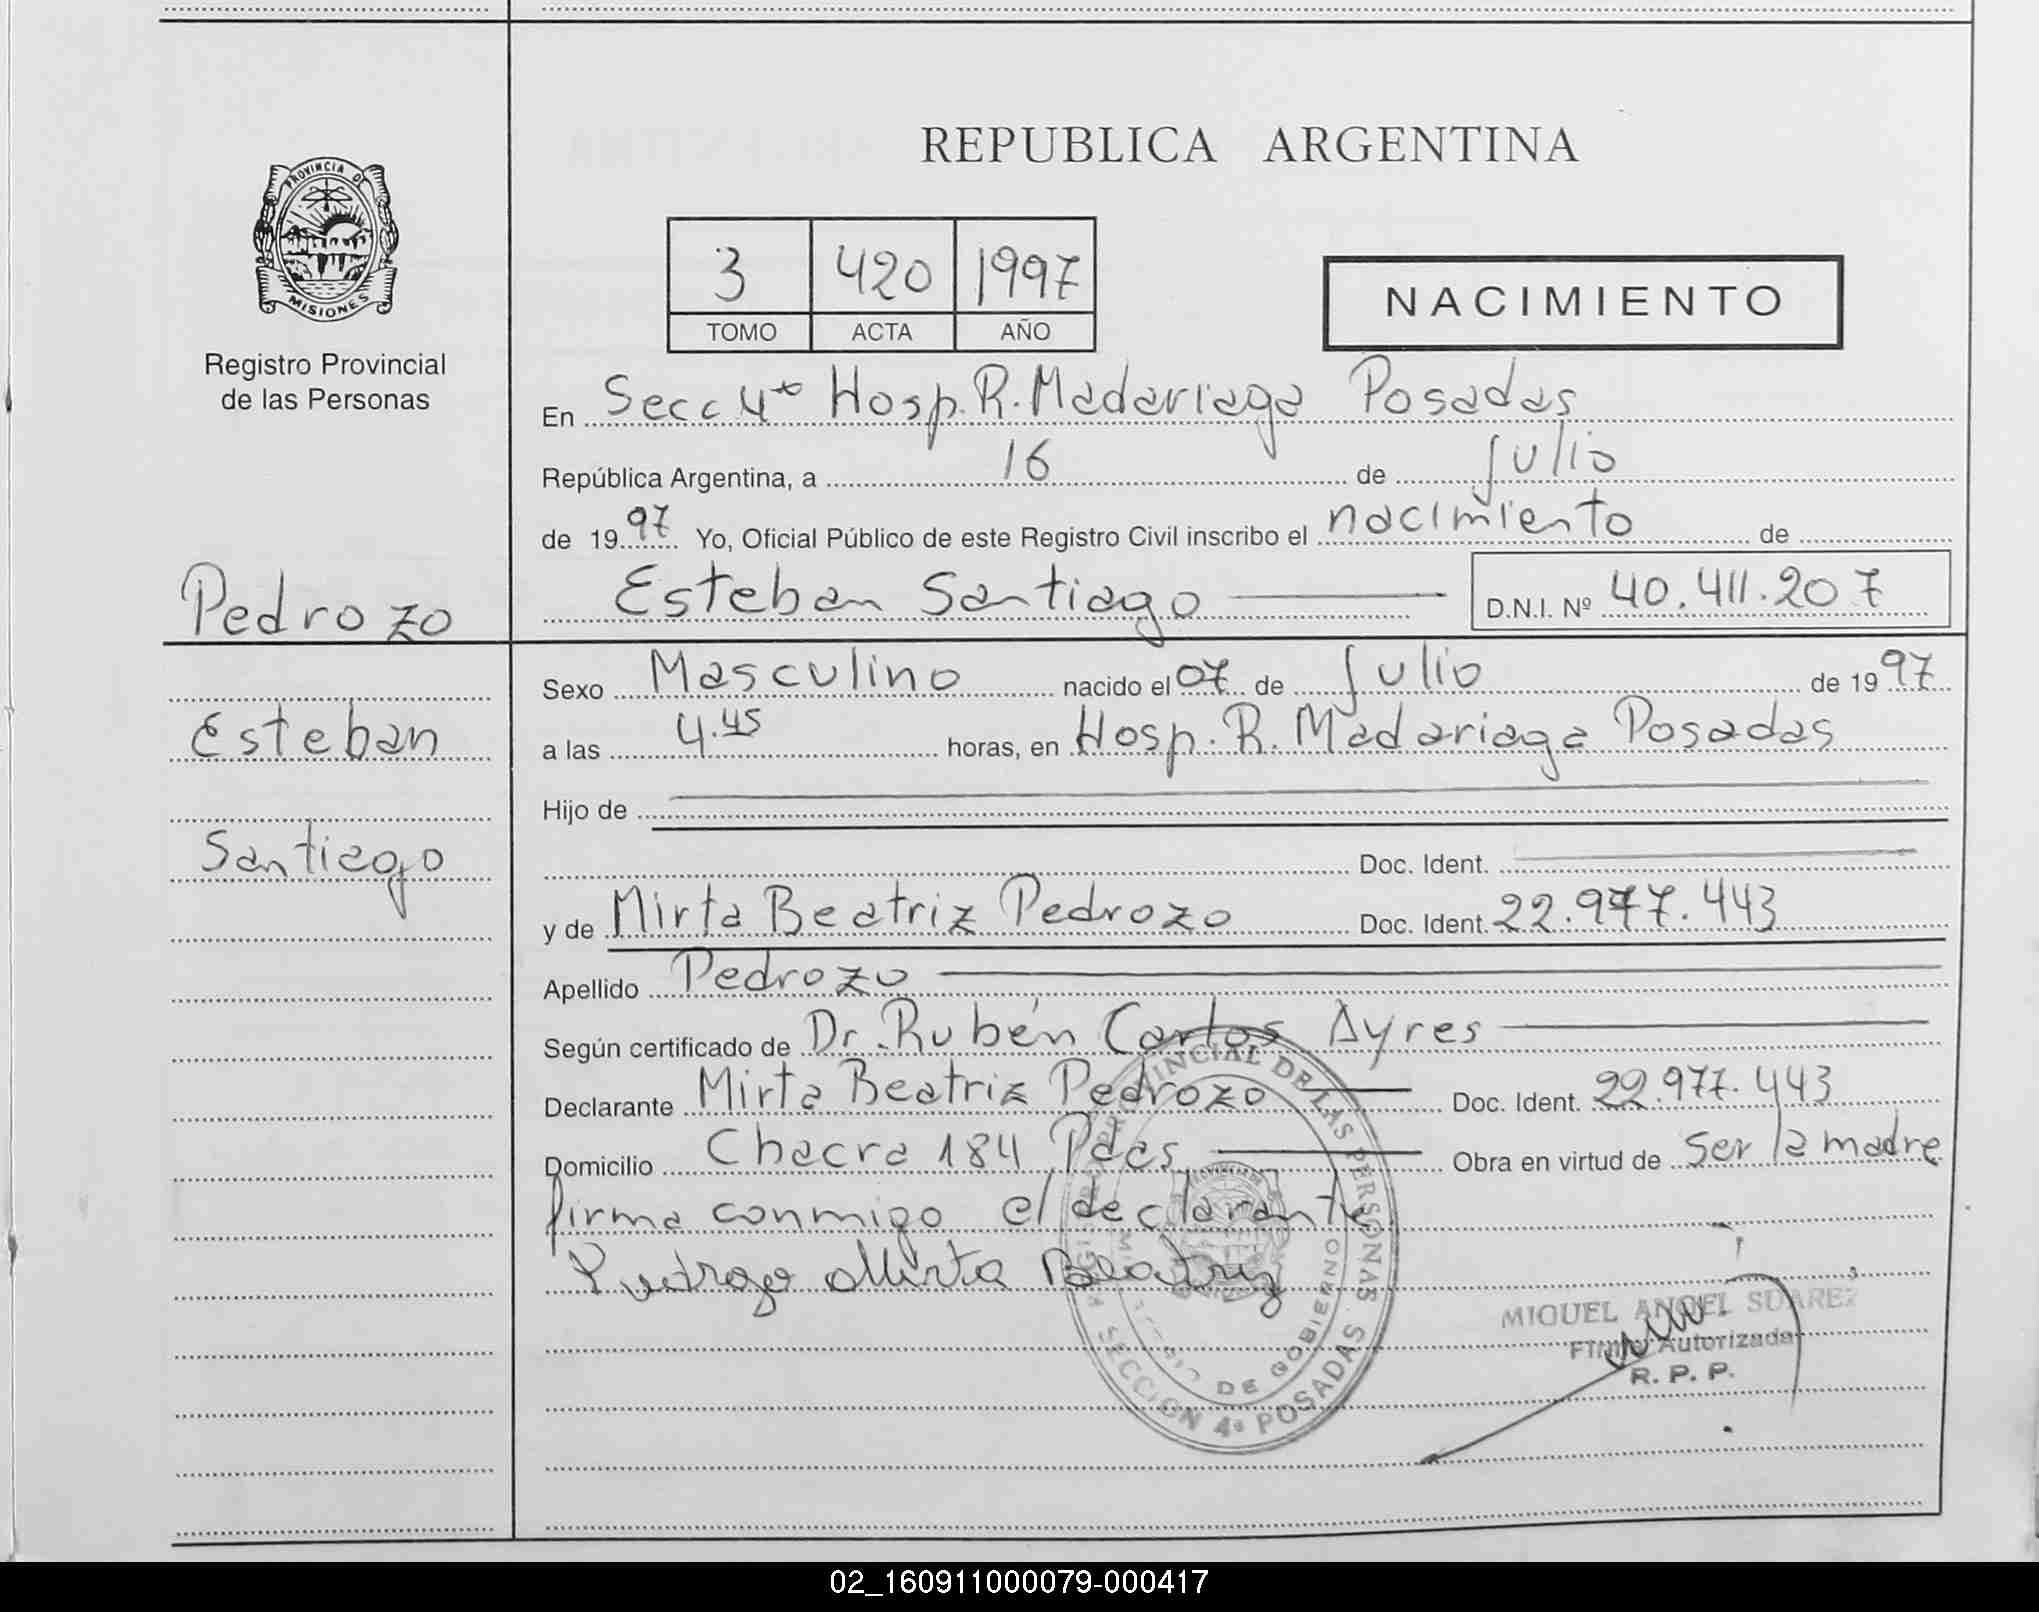 REPUBLICA ARGENTINA
PROVINCIA DE
MISIONES
Registro Provincial
de las Personas
3 420 1997
TOMO ACTA AÑO
NACIMIENTO
En Secc 4ta Hosp. R. Madariaga Posadas
República Argentina, a 16 de Julio
de 1997 Yo, Oficial Público de este Registro Civil inscribo el nacimiento de
Esteban Santiago D.N.I. Nº 40.411.207
Pedrozo
Esteban
Santiago
Sexo Masculino nacido el 07 de Julio de 1997
a las 4.45 horas, en Hosp. R. Madariaga Posadas
Hijo de
Doc. Ident.
y de Mirta Beatriz Pedrozo Doc. Ident. 22.977.443
Apellido Pedrozo
Según certificado de Dr. Rubén Carlos Ayres
Declarante Mirta Beatriz Pedrozo Doc. Ident. 22.977.443
Domicilio Chacra 184 Pdas Obra en virtud de ser la madre
firma conmigo el declarante
Pedrozo Mirta Beatriz
PROVINCIAL DE LAS PERSONAS
DE GOBIERNO
SECCION 4ª POSADAS
MIGUEL ANGEL SUAREZ
Firma Autorizada
R. P. P.
02_160911000079-000417